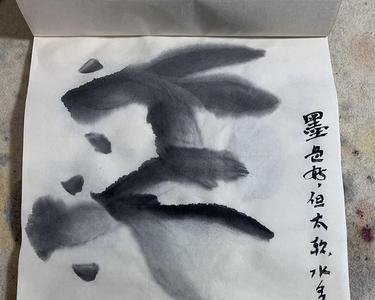 墨色好，但太软，水多